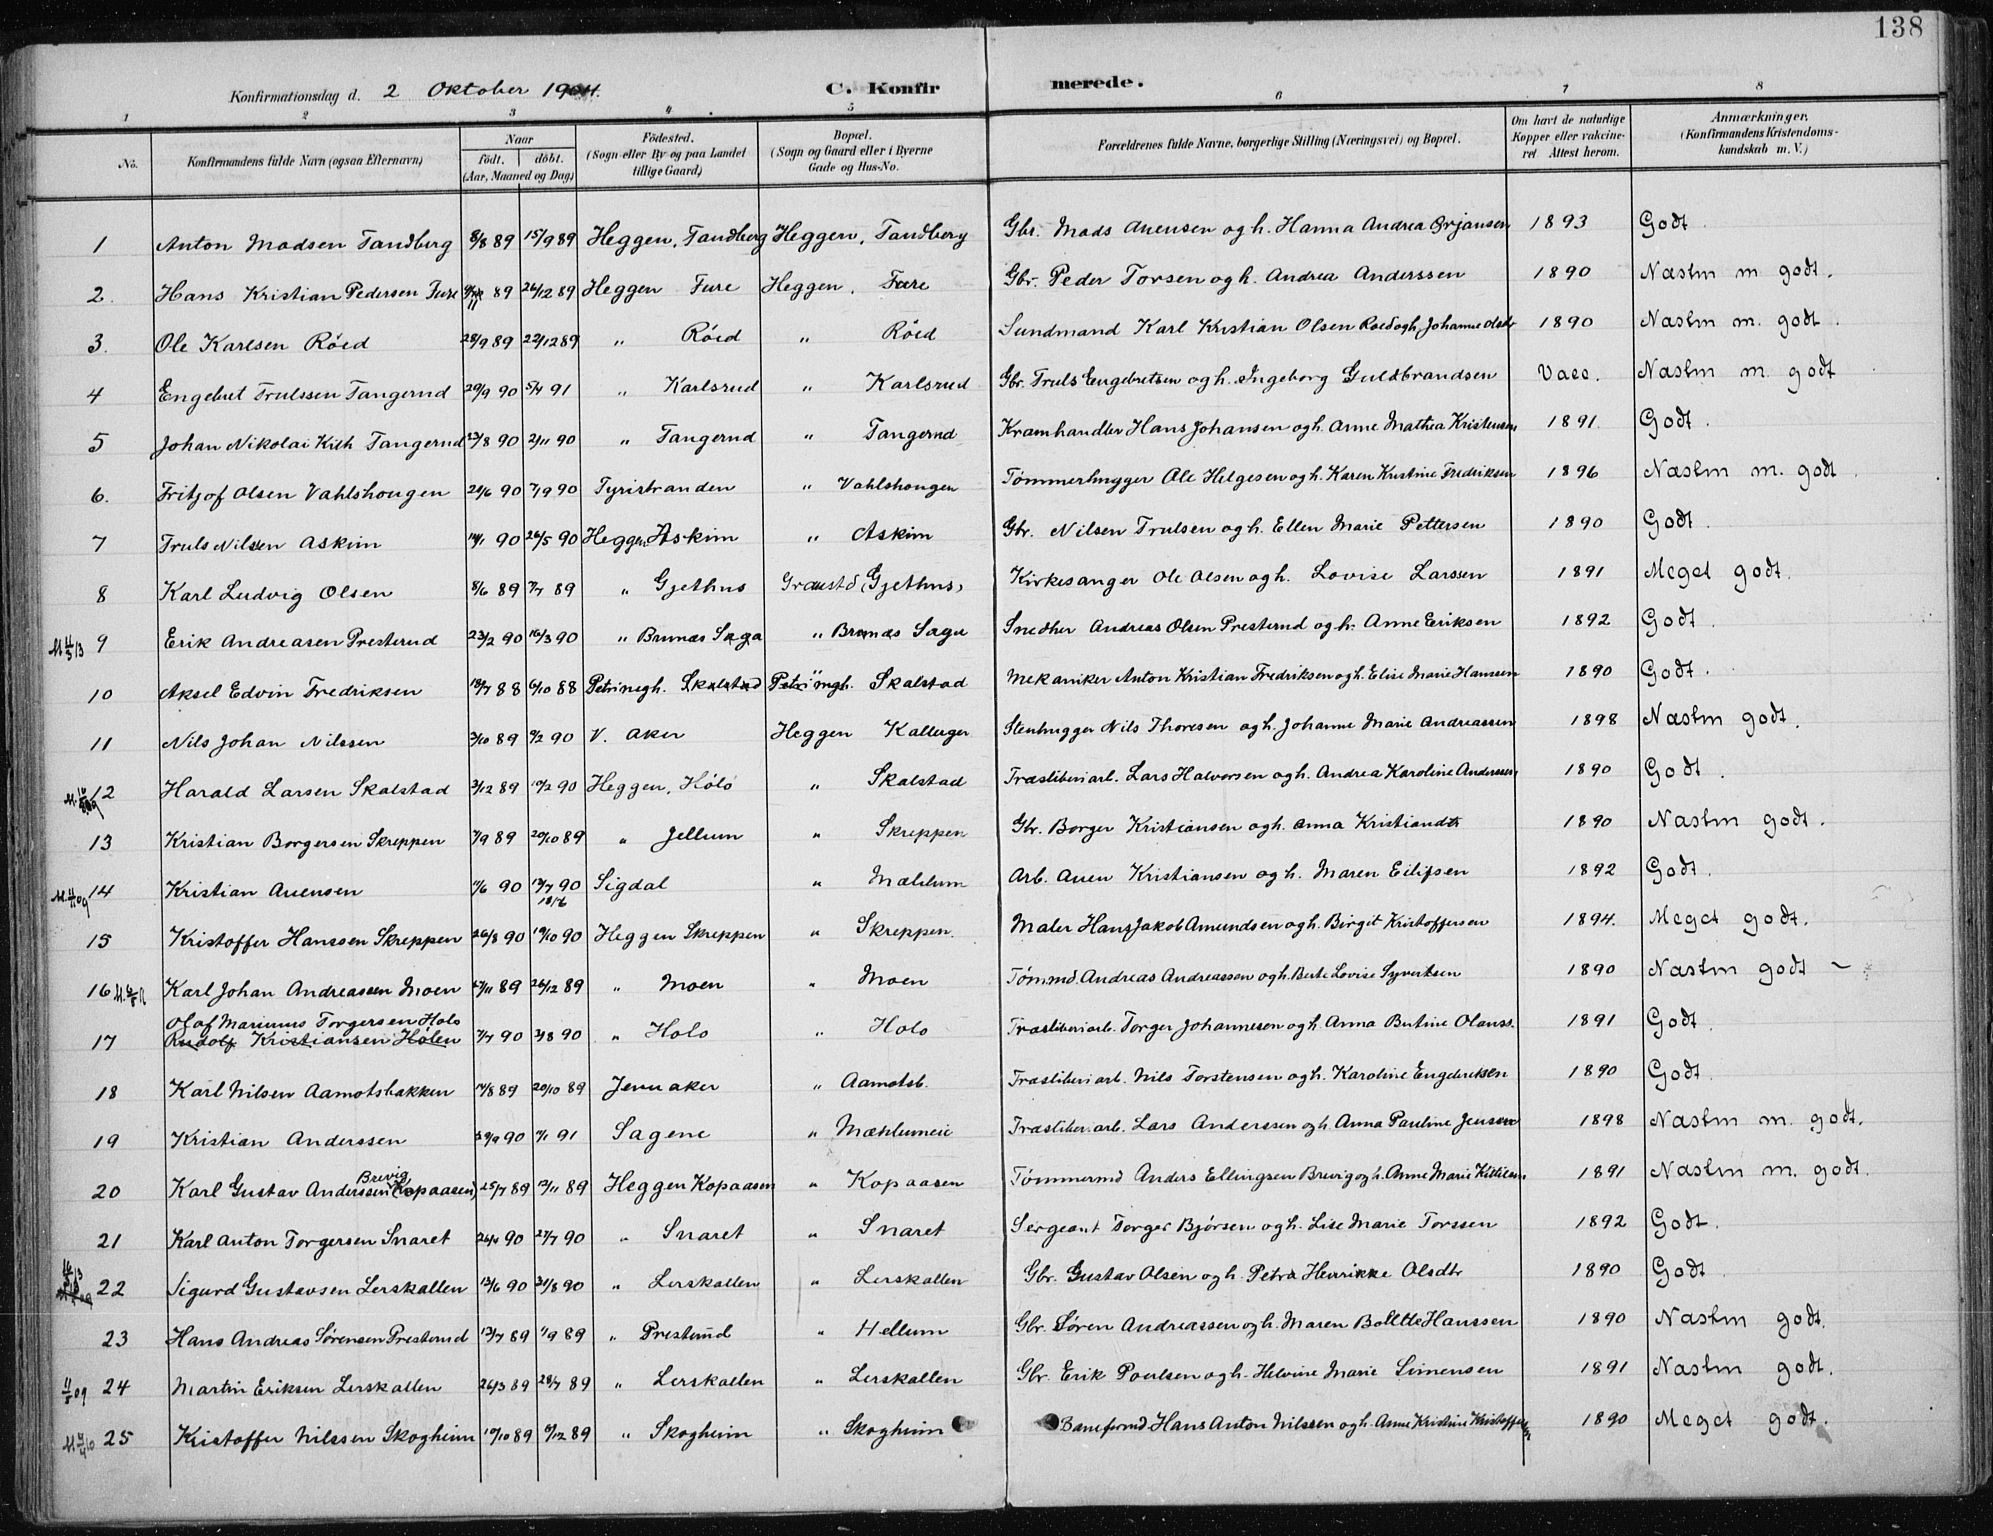 138
Konfirmationsdag d. 2 Oktober 1904. C. Konfirmerede.
1 2 3 4 5 6 7 8
No. Konfirmandens fulde Navn (ogsaa Efternavn) Naar födt. döbt. (Aar, Maaned og Dag) Födested. (Sogn eller By og paa Landet tillige Gaard) Bopæl. (Sogn og Gaard eller i Byerne Gade og Hus-No. Forældrenes fulde Navne, borgerlige Stilling (Næringsvei) og Bopæl. Om havt de naturlige Kopper eller vakcineret. Attest herom. Anmærkninger. (Konfirmandens Kristendomskundskab m. V.)
1 Anton Madsen Tandberg 8/8 89 15/9 89 Heggen, Tandberg Heggen, Tandberg Gbr. Mads Auensen og h. Hanna Andrea Ørjansen 1893 Godt.
2. Hans Kristian Pedersen Fure 89 26/12 89 Heggen Fure Heggen, Fure Gbr. Peder Torsen og h. Andrea Anderssen 1890 Næstm m godt.
3. Ole Karlsen Röed 28/9 89 22/12 89 " Röed " Röed Sundmand Karl Kristian Olsen Roed og h. Johanne Olsdr 1890 Næstm m. godt.
4 Engebret Trulssen Tangerud 29/9 90 5/4 91 " Karlsrud " Karlsrud Gbr. Truls Engebretsen og h. Ingeborg Guldbrandsen Vacc. Næstm m. godt
5 Johan Nikolai Kith Tangerud 23/8 90 2/11 90 " Tangerud " Tangerud Kramhandler Hans Johansen og h. Anne Mathea Kristensen 1891. Godt.
6. Fritjof Olsen Vahlshougen 20/6 90 7/9 90 Tyristranden " Vahlshougen Tømmerhugger Ole Helgesen og h. Karen Kristine Fredriksen 1896 Næstm m. godt.
7 Truls Nilsen Askim 90 26/5 90 Heggen Askim " Askim Gbr. Nilsen Trulsen og h. Ellen Marie Pettersen 1890 Godt.
8 Karl Ludvig Olsen 8/6 89 7/7 89 " Gjethus Graustd (Gjethus) Kirkesanger Ole Olsen og h. Lovise Larssen 1891 Meget godt.
9 Erik Andreasen Presterud 23/2 90 16/3 90 " Brunæs Saga " Brunæs Sagu Snedker Andreas Olsen Presterud og h. Anne Eriksen 1892 Godt.
10 Aksel Edvin Fredriksen 18/7 88 6/10 88 Petrimegh. Skalstad Petrimgh. Skalstad Mekaniker Anton Kristian Fredriksen og h. Elise Marie Hanssen 1890 Godt.
11 Nils Johan Nilssen 3/10 89 9/2 90 V. Aker Heggen Kallerger Stenhugger Nils Thoresen og h. Johanne Marie Andreassen 1898 Næstm godt.
12 Harald Larsen Skalstad 3/12 89 10/2 90 Heggen, Hölö " Skalstad Træsliberiarb. Lars Halvorsen og h. Andrea Karoline Anderssen 1890 Godt.
13 Kristian Borgersen Skreppen 7/9 89 20/10 89 " Jellum " Skreppen Gbr. Borger Kristiansen og h. Anna Kristiandtr 1890 Næstm godt.
14 Kristian Auensen 90 13/7 90 Sigdal " Mælum Arb. Auen Kristiansen og h. Maren Eilifsen 1892 Godt.
15 Kristoffer Hanssen Skreppen 26/8 90 19/10 90 Heggen Skreppen " Skreppen. Maler Hans Jakob Amundsen og h. Birgit Kristoffersen 1894. Meget godt.
16 Karl Johan Andreassen Moen 89 26/12 89 " Moen " Moen Tømmd. Andreas Andreassen og h. Berte Lovise Syvertsen 1890 Næstm godt
Olaf Marinius Torgersen Holo
17 Rudolf Kristiansen Hølen 7/7 90 3/8 90 " Holo " Holo Træsliberiarb. Torger Johannesen og h. Anna Bertine Olauss. 1891 Godt.
18 Karl Nilsen Aamotsbakken 14/8 89 20/10 89 Jevnaker " Aamotsb. Træsliberiarb. Nils Torstensen og h. Karoline Engebriksen 1890 Godt.
19 Kristian Anderssen 29/9 90 1/1 91 Sagene " Mæhlumeie Træsliber.arb. Lars Anderssen og h. Anna Pauline Jenssen 1898 Næstm m. godt.
Brevig
20 Karl Gustav Anderssen (Kopaasen) 25/7 89 13/11 89 Heggen Kopaasen " Kopaasen Tömmermd Anders Ellingsen Brevig og h. Anne Marie Kittelsen 1891 Næstm m. godt.
21 Karl Anton Torgersen Snaret 26/4 90 27/7 90 " Snaret " Snaret Sergeant Torger Bjørsen og h. Lise Marie Torssen 1892 Godt.
22 Sigurd Gustavsen Lerskallen 13/6 90 31/8 90 " Lerskallen " Lerskallen Gbr. Gustav Olsen og h. Petra Henrikke Olsdtr 1890 Godt.
23 Hans Andreas Sørensen Presterud 13/7 89 1/9 89 " Presterud " Hellum Gbr. Søren Andreassen og h. Maren Bollette Hanssen 1890 Næstm godt.
11/5 09 24 Martin Eriksen Lerskallen 26/3 89 28/7 89 " Lerskallen " Lerskallen Gbr. Erik Poulsen og h. Helvine Marie Simensen 1891 Næstm godt.
25 Kristoffer Nilssen Skogheim 17/10 89 8/12 89 " Skogheim " Skogheim Baneformd Hans Anton Nilssen og h. Anne Kristine Kristoffersen 1890 Meget godt.